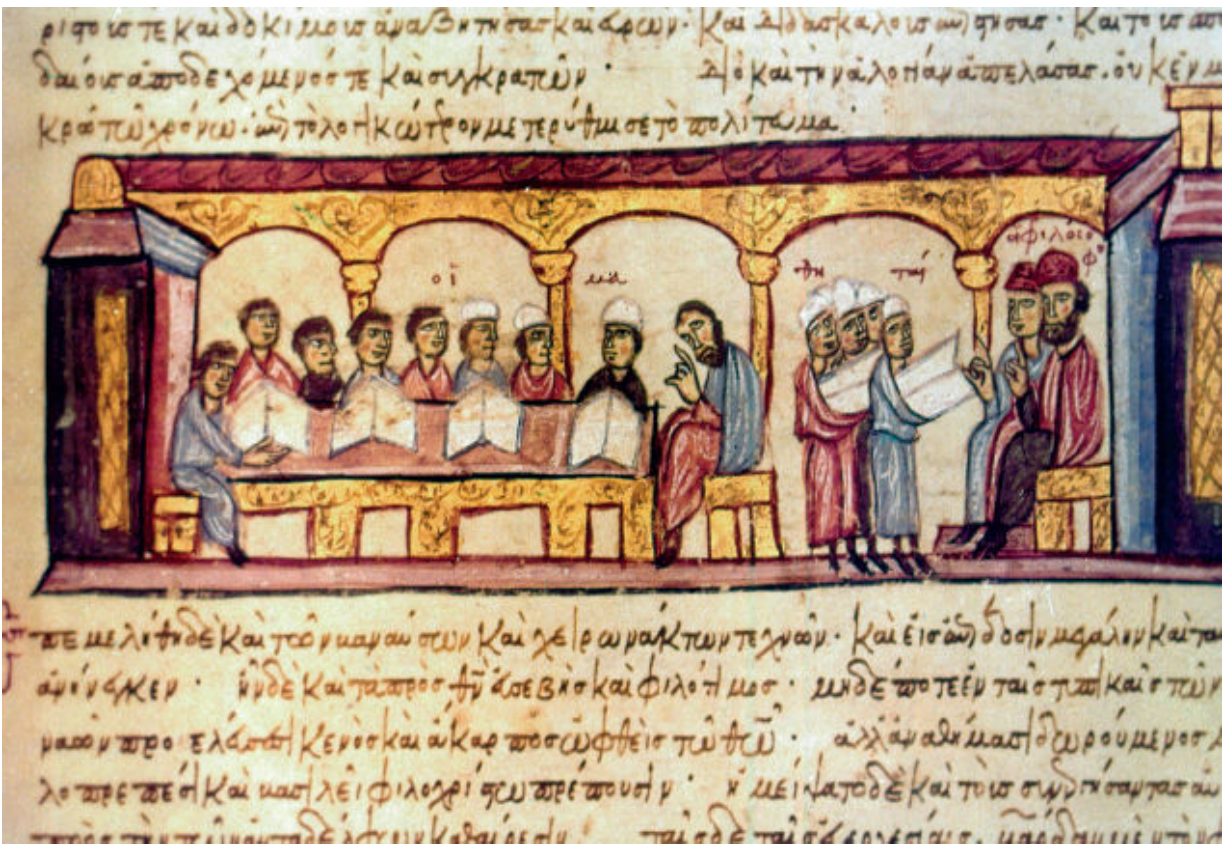 ρίστοις τὲ καὶ δοκίμοις ἀναζητήσας καὶ εὑρών· καὶ διδασκάλοις ἐπιστήσας· καὶ τοῖς σπου
δαίοις ἀποδεχόμενός τε καὶ συγκρατῶν· διὸ καὶ τὴν ἀλογίαν ἀπελάσας. οὐκ ἐν μ
κρῶ τῶ χρόνω. ἐπὶ τὸ λογικώτερον μετερύθμισε τὸ πολίτευμα
οἱ μα θη ταί
ὁ φιλόσοφο
πεμελήθη δὲ καὶ τῶν βαναύσων καὶ χειρωνάκτων τεχνῶν· καὶ εἰς ἐπίδοσιν μεγάλην καὶ τα
ἀνήνεγκεν· ἦν δὲ καὶ τὰ πρὸς θν εὐσεβὴς καὶ φιλότιμος· μηδέποτε ἐν ταῖς
ναῶν προελεύσεσι κενὸς καὶ ἄκαρπος ὀφθεὶς τῶ θῶ· ἀλλ' ἀναθήμασι δωρούμενος
λοπρεπέσι καὶ βασιλεῖ φιλοχρίστω πρέπουσιν· ἠμείψατο δὲ καὶ τοὺς
πρὸς τὴν καθαίρεσιν· ταῖσδε ταῖς εὐεργεσίαις.